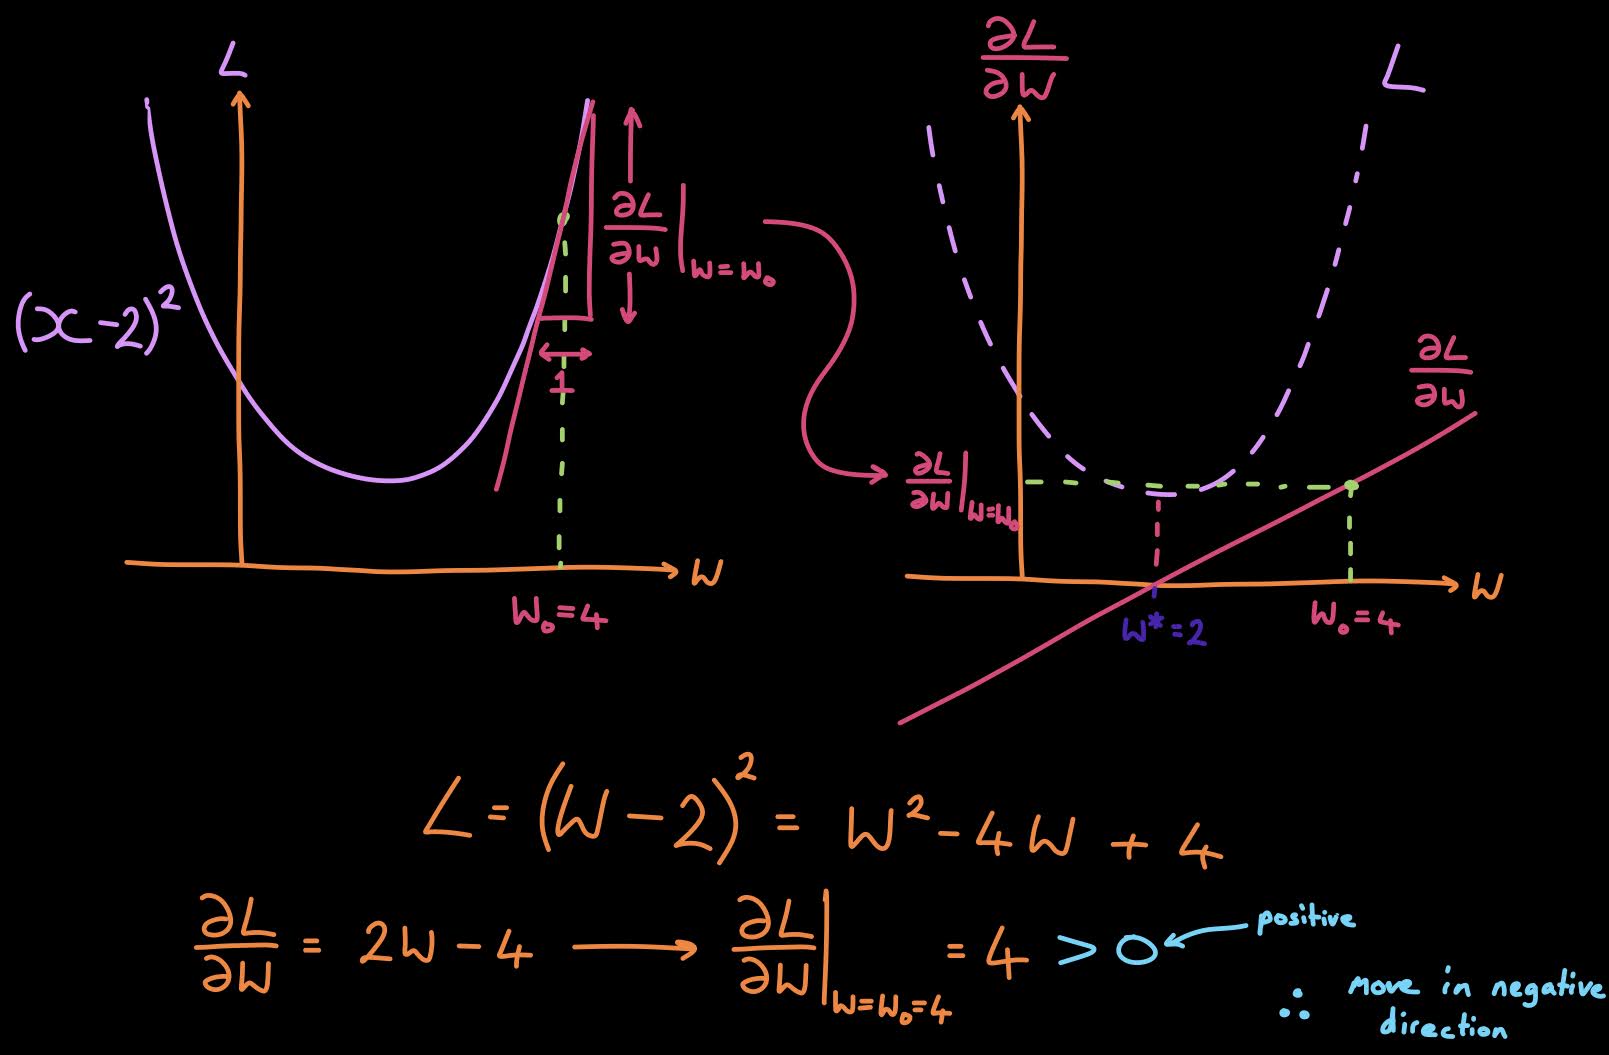 L
∂L/∂W
L
(x-2)²
∂L/∂W|W=W₀
1
∂L/∂W
∂L/∂W|W=W₀
W
W
W₀=4
W*=2
W₀=4
L = (W-2)² = W² - 4W + 4
∂L/∂W = 2W - 4 → ∂L/∂W|W=W₀=4 = 4 > 0 ← positive
∴ move in negative
direction